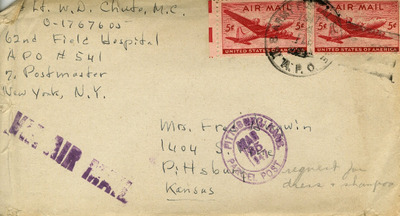 Lt. W. D. Chute, M.C.
O-1767605
62nd Field Hospital
APO # 541
% Postmaster
New York, N.Y.
AIR MAIL
5¢ 5¢
UNITED STATES OF AMERICA
AIR MAIL
5¢ 5¢
UNITED STATES OF AMERICA
VIA AIR MAIL
Mrs.
1404
Pittsburg
Kansas
PITTSBURG, KANS.
MAR
PARCEL POST
request for
dress + shampoo